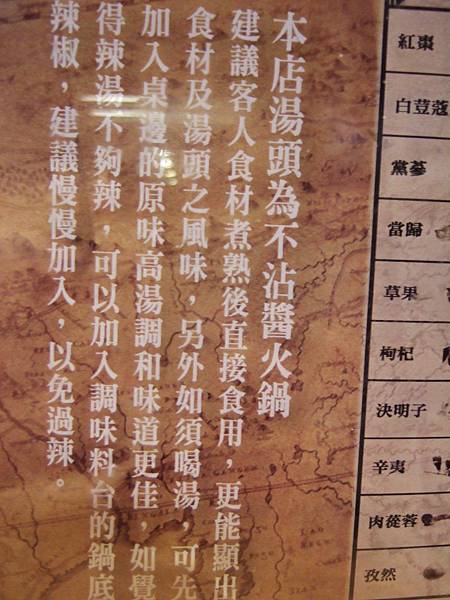 本店湯頭為不沾醬火鍋
建議客人食材煮熟後直接食用，更能顯出
食材及湯頭之風味，另外如須喝湯，可先
加入桌邊的原味高湯調和味道更佳，如覺
得辣湯不夠辣，可以加入調味料台的鍋底
辣椒，建議慢慢加入，以免過辣。
紅棗
白荳蔻
黨蔘
當歸
草果
枸杞
決明子
辛夷
肉蓯蓉
孜然